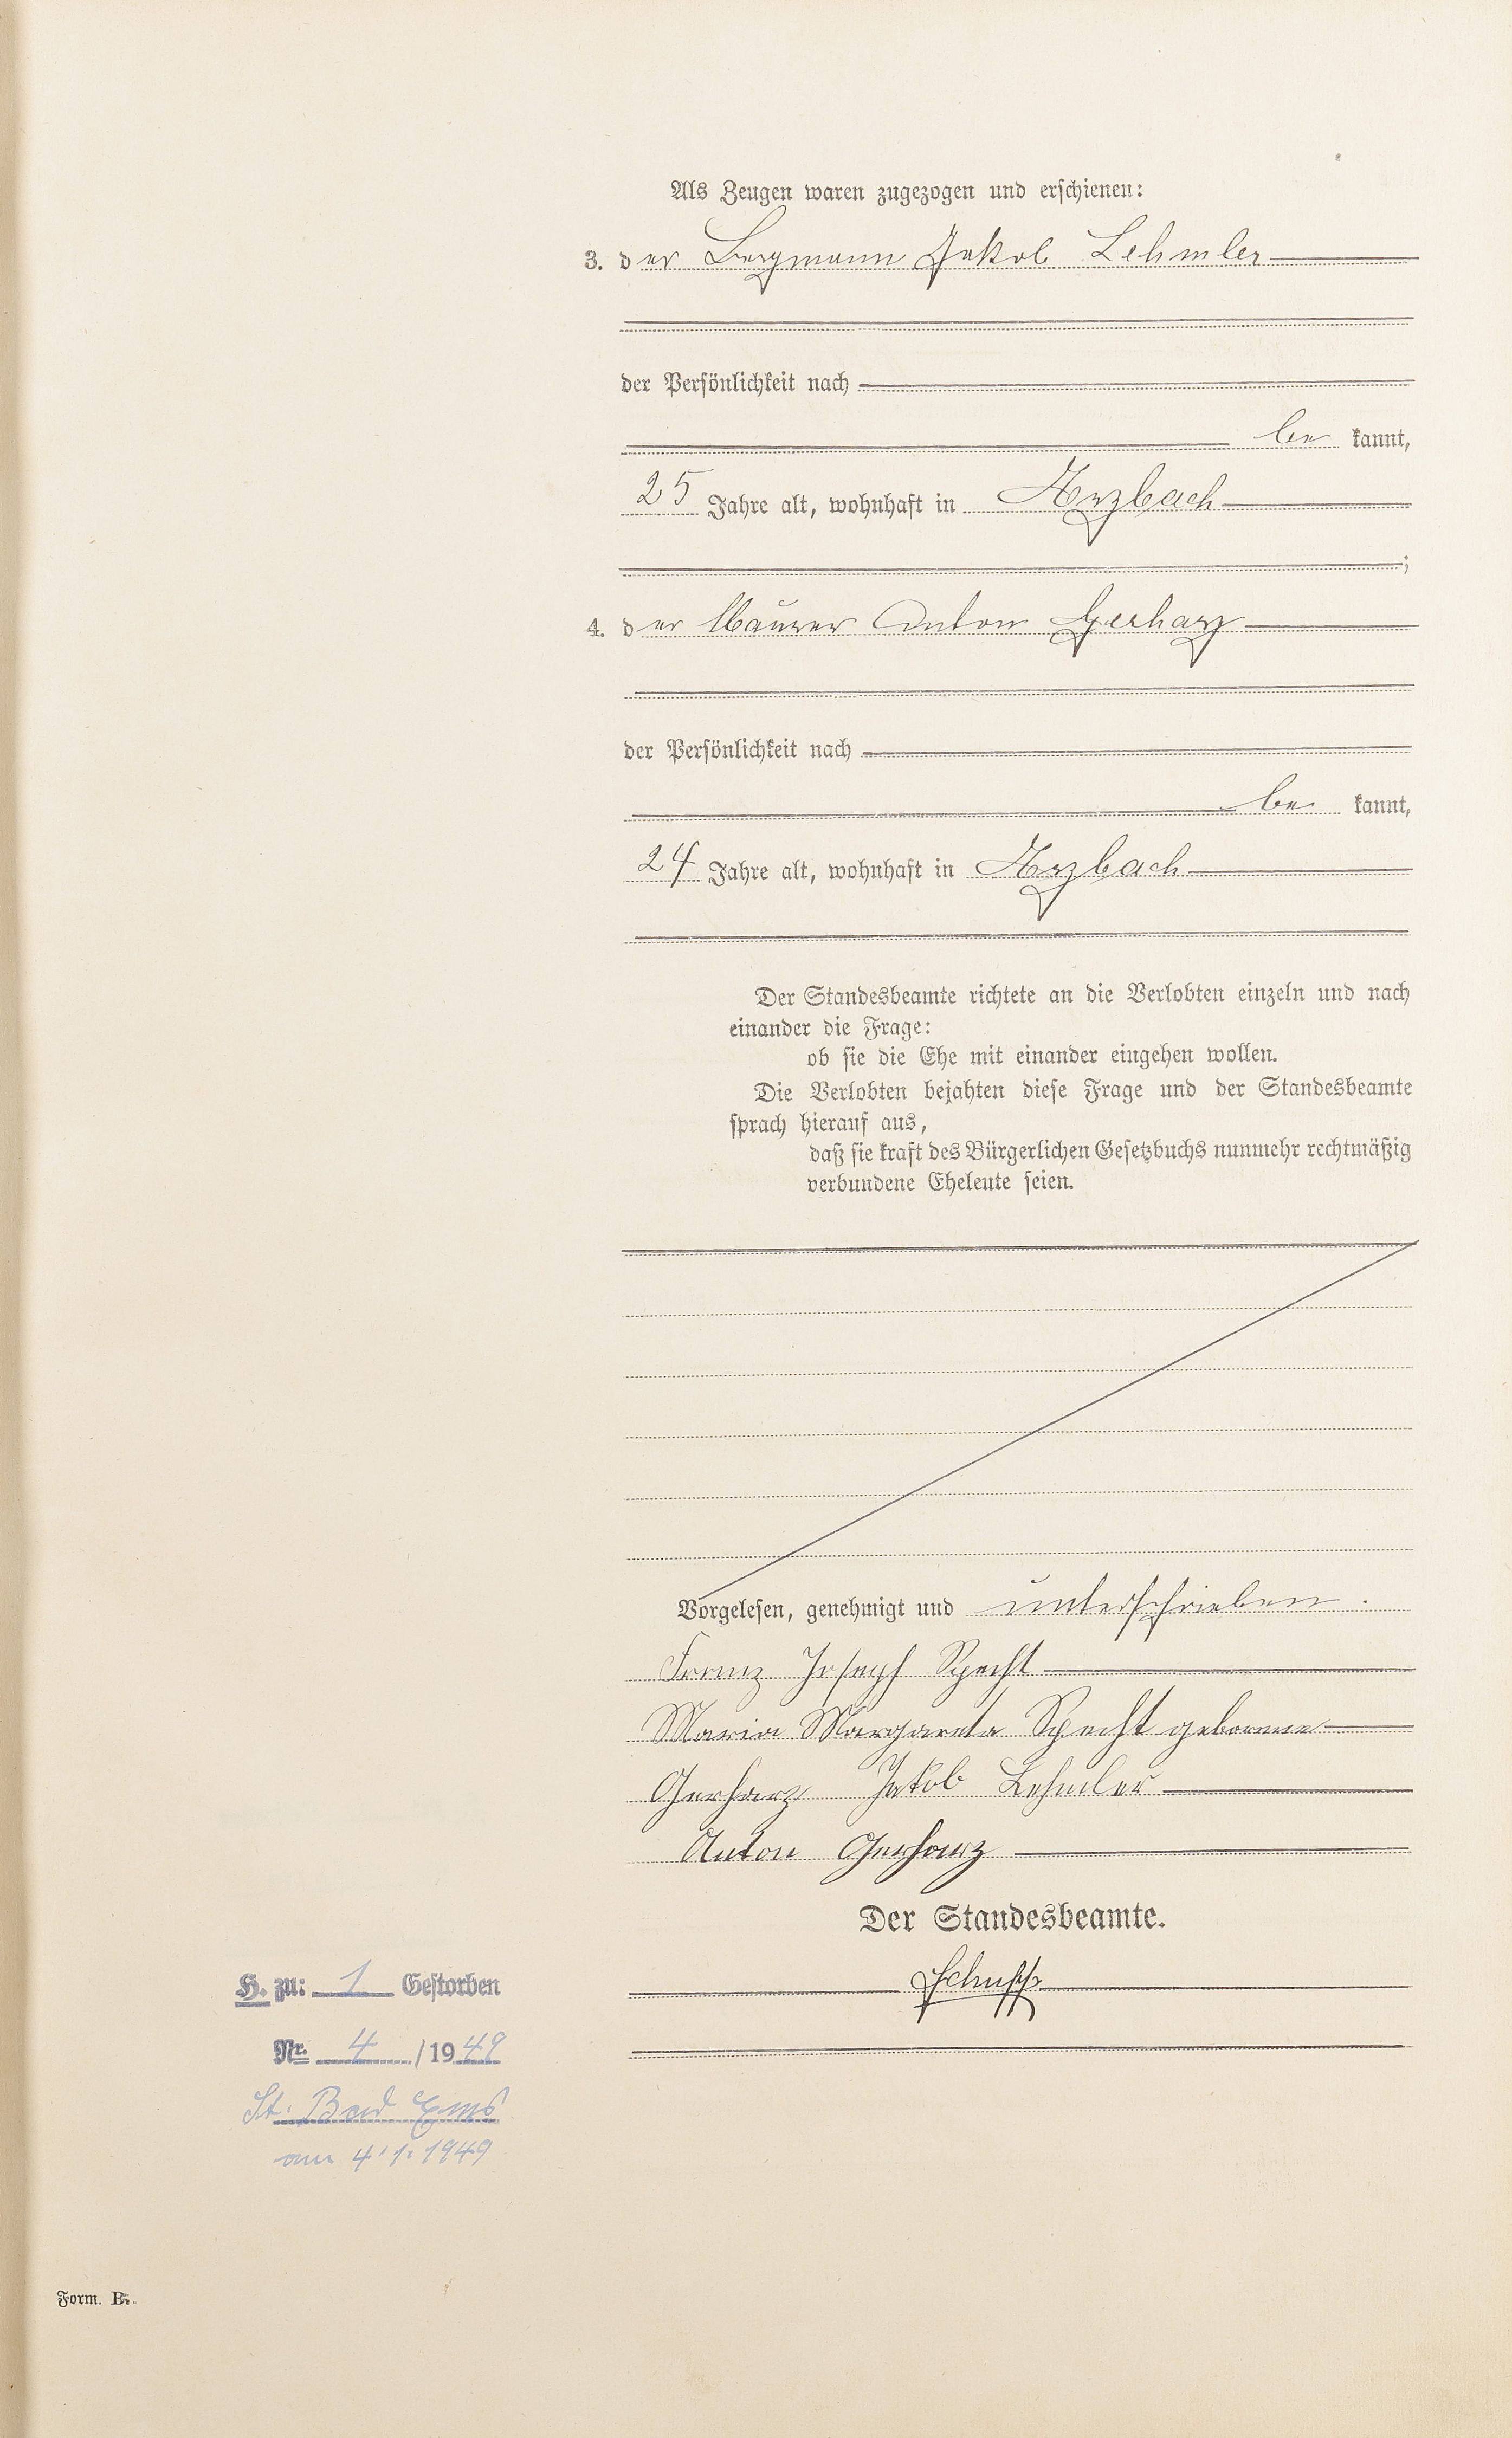 Als Zeugen waren zugezogen und erschienen:
3. der Bergmann Jakob Lehmler
der Persönlichkeit nach
be kannt,
25 Jahre alt, wohnhaft in Arzbach
;
4. der Maurer Anton Gerharz
der Persönlichkeit nach
be kannt,
24 Jahre alt, wohnhaft in Arzbach
Der Standesbeamte richtete an die Verlobten einzeln und nach
einander die Frage:
ob sie die Ehe mit einander eingehen wollen.
Die Verlobten bejahten diese Frage und der Standesbeamte
sprach hierauf aus,
daß sie kraft des Bürgerlichen Gesetzbuchs nunmehr rechtmäßig
verbundene Eheleute seien.
Vorgelesen, genehmigt und unterschrieben.
Franz Joseph Specht
Maria Margareta Specht geborene
Gerharz Jakob Lehmler
Anton Gerharz
Der Standesbeamte.
H. zu: 1 Gestorben
Nr. 4 /1949
St. Bad Ems
am 4.1.1949
Form. B.